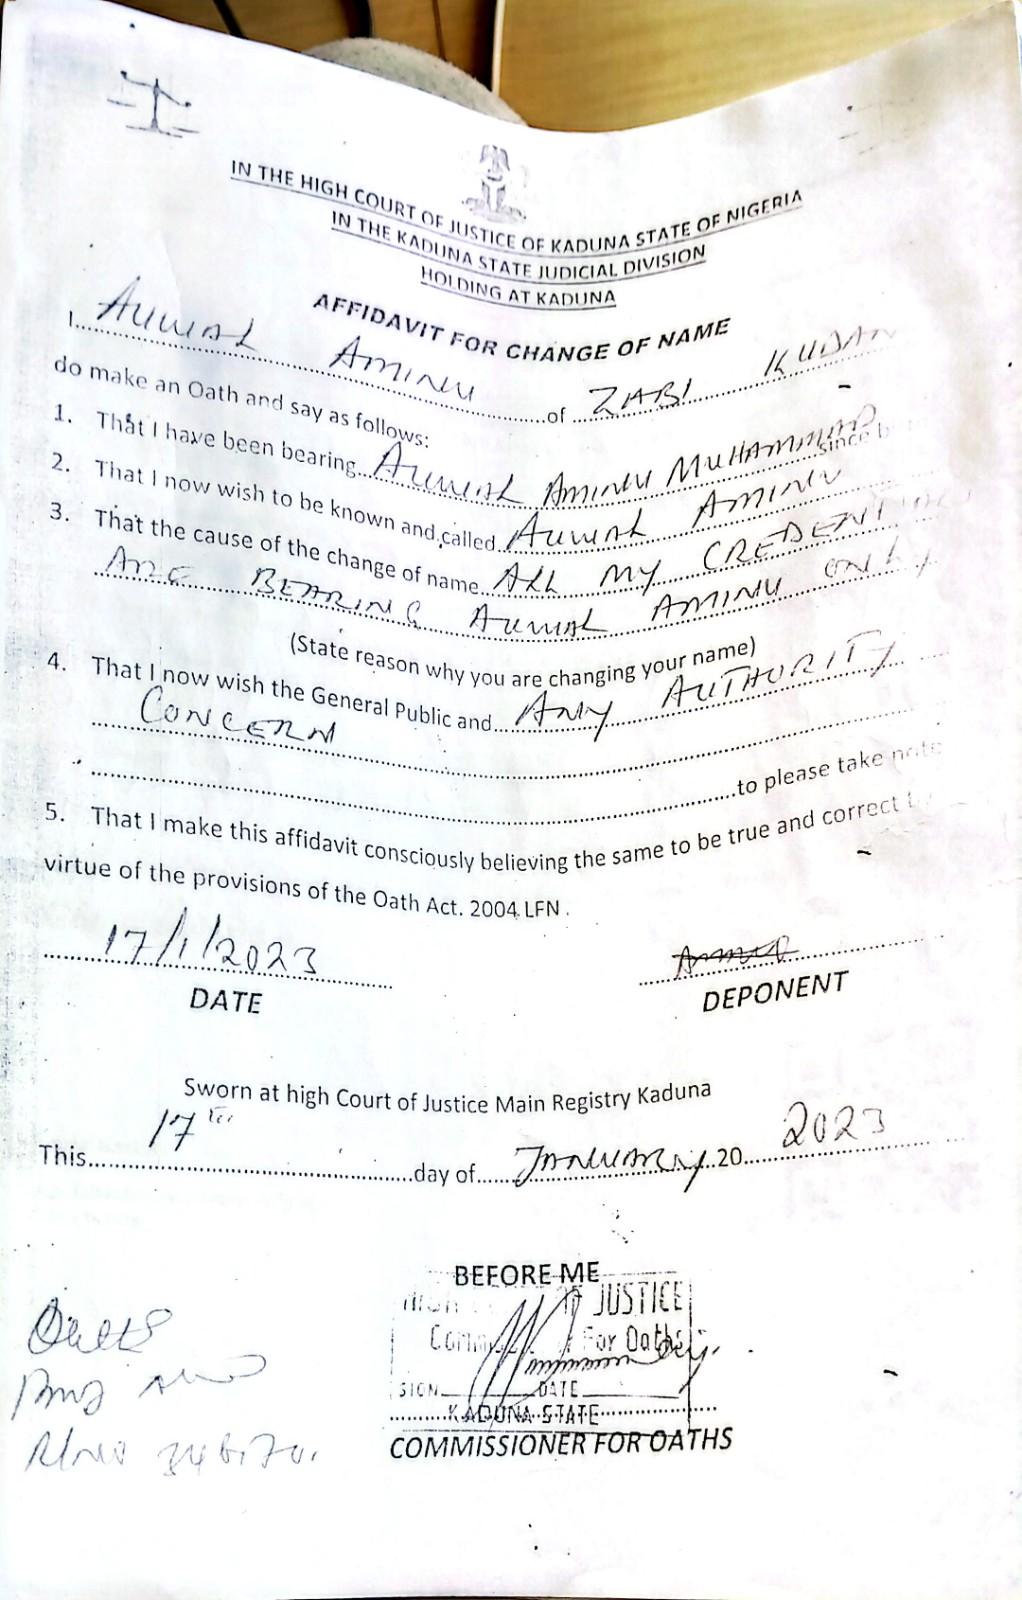 IN THE HIGH COURT OF JUSTICE OF KADUNA STATE OF NIGERIA
IN THE KADUNA STATE JUDICIAL DIVISION
HOLDING AT KADUNA
AFFIDAVIT FOR CHANGE OF NAME
I AUWAL AMINU of ZABI KUDAN
do make an Oath and say as follows:
1. That I have been bearing AUWAL AMINU MUHAMMAD since
2. That I now wish to be known and called AUWAL AMINU
3. That the cause of the change of name ALL MY
ARE BEARING AUWAL AMINU ONLY
(State reason why you are changing your name)
4. That I now wish the General Public and ANY AUTHORITY
CONCERN
to please take note
5. That I make this affidavit consciously believing the same to be true and correct
virtue of the provisions of the Oath Act. 2004 LFN.
17/1/2023
DATE DEPONENT
Sworn at high Court of Justice Main Registry Kaduna
This 17TH day of JANUARY 20 2023
BEFORE ME
JUSTICE
For Oaths
SIGN DATE
KADUNA STATE
COMMISSIONER FOR OATHS